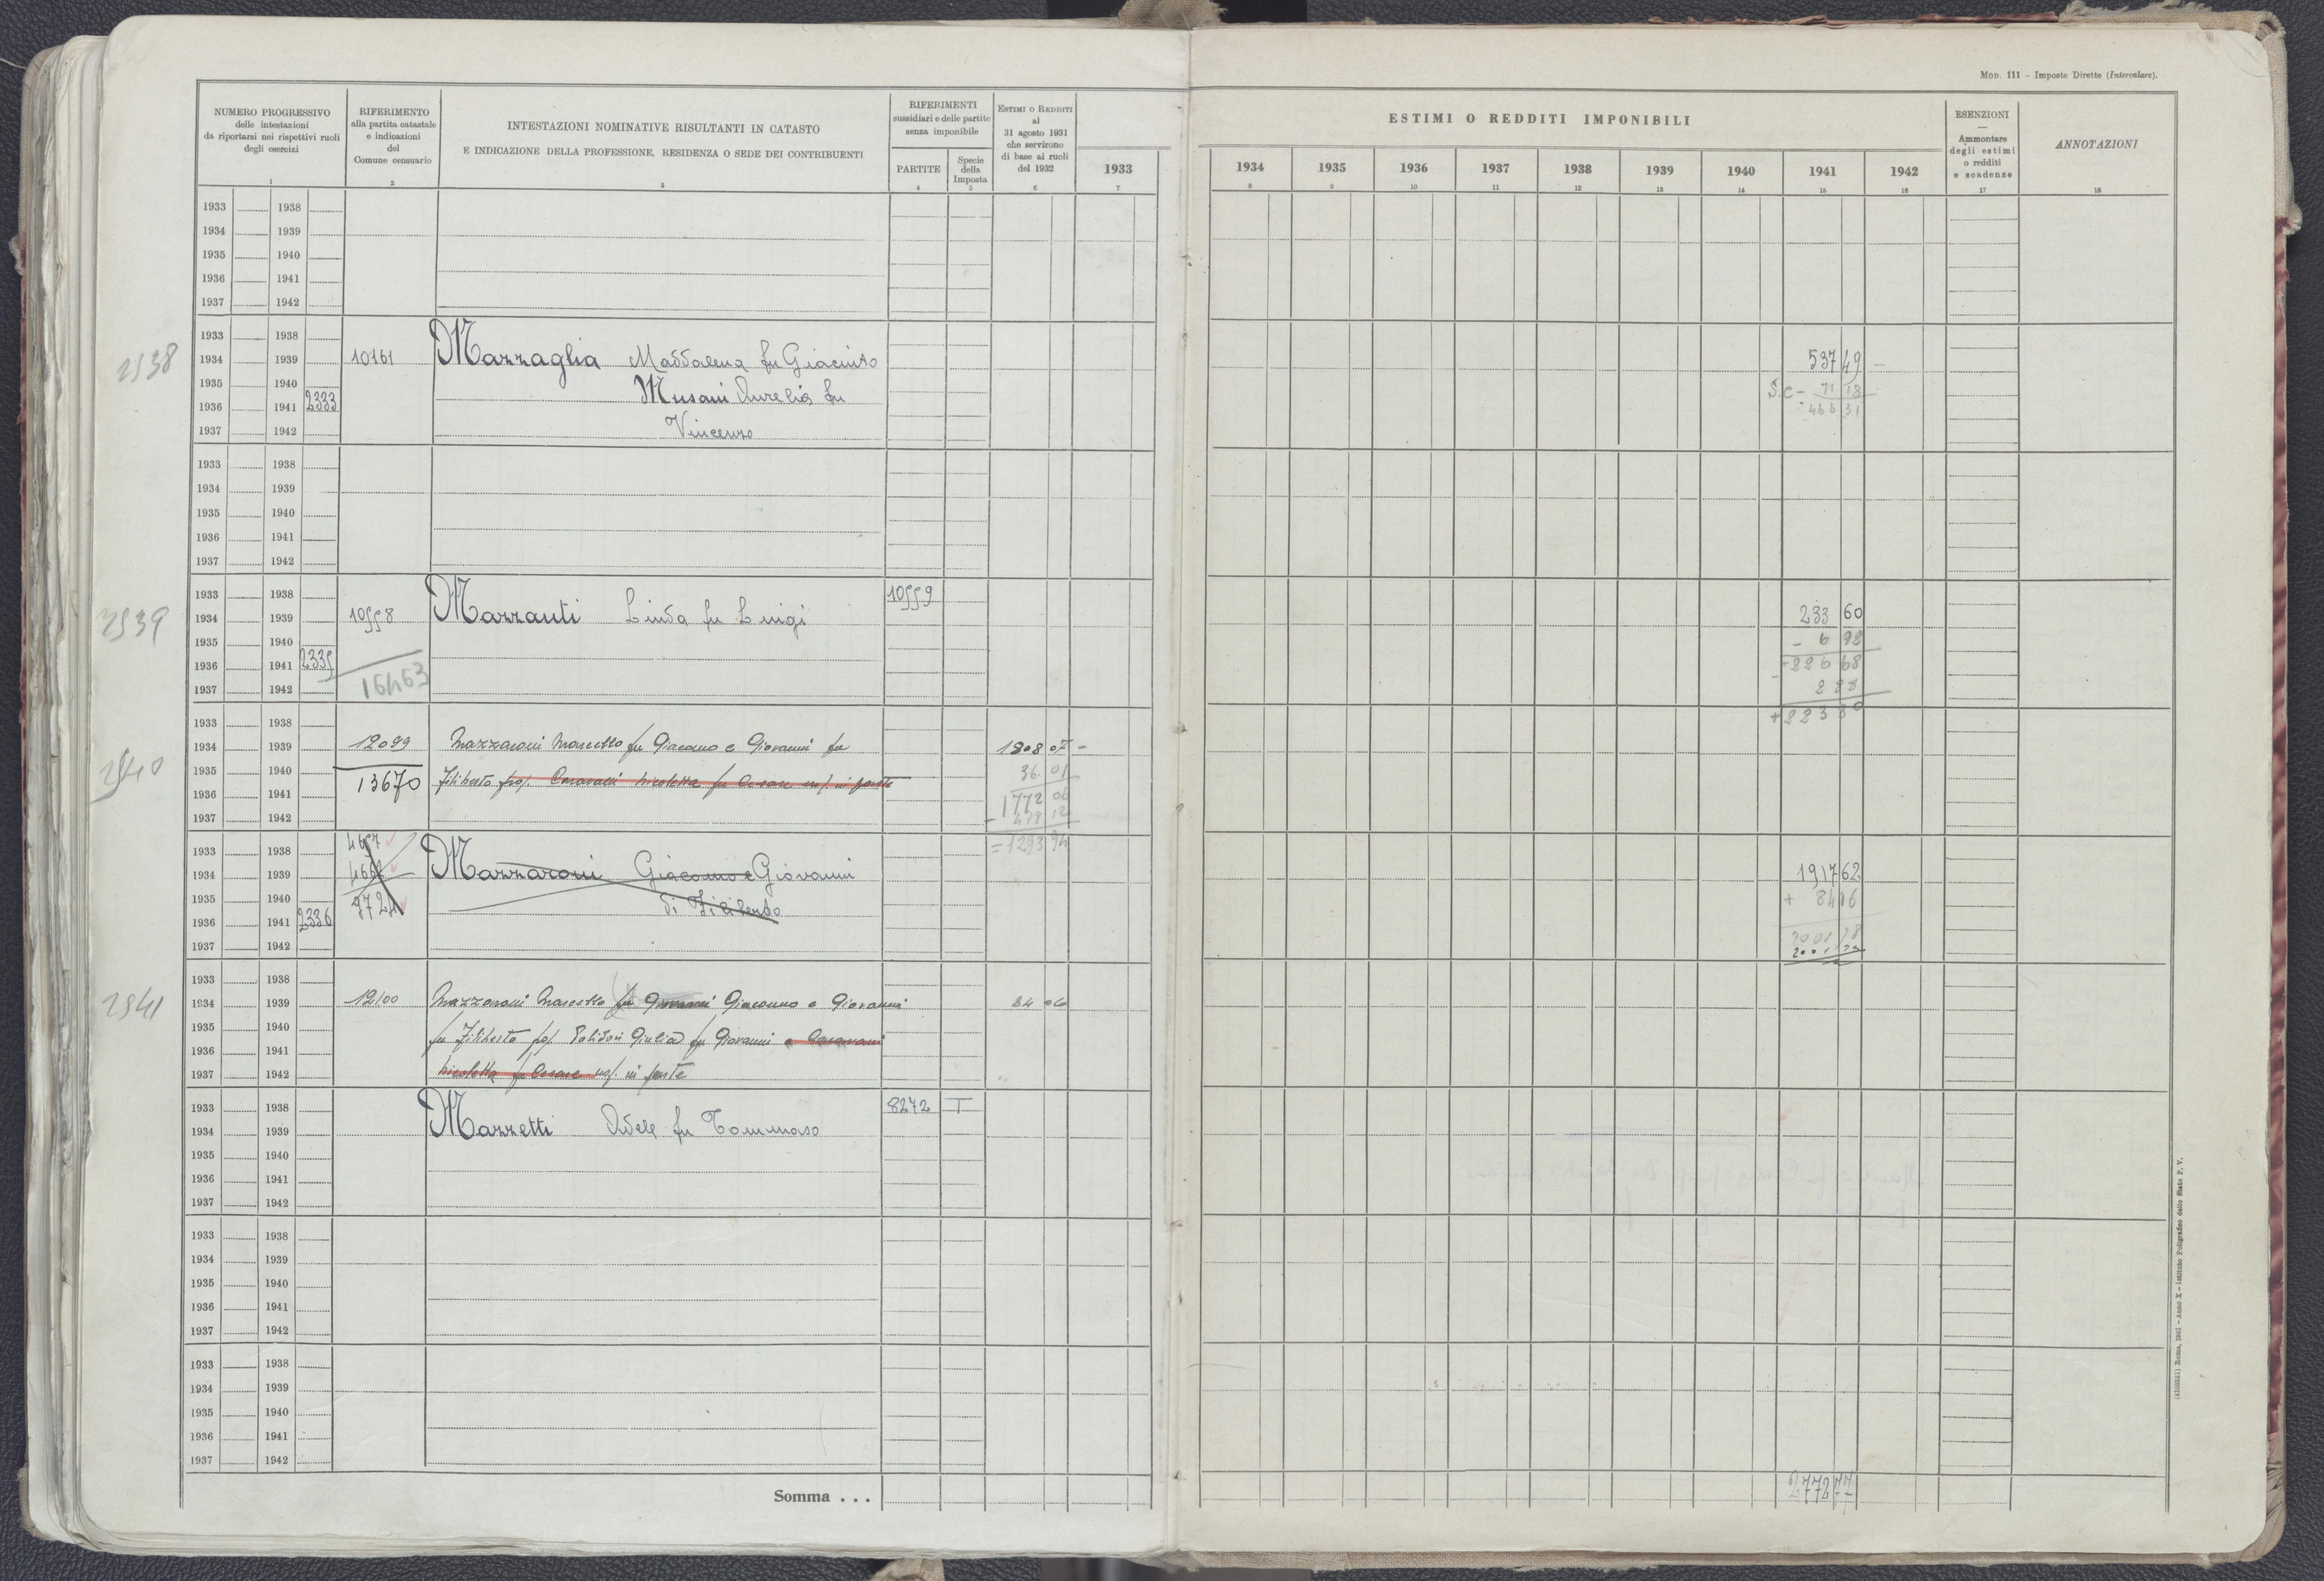 Mod. 111 – Imposte Dirette (Intercalare).
NUMERO PROGRESSIVO
delle intestazioni
da riportarsi nei rispettivi ruoli
degli esercizi
RIFERIMENTO
alla partita catastale
e indicazioni
del
Comune censuario
INTESTAZIONI NOMINATIVE RISULTANTI IN CATASTO
E INDICAZIONE DELLA PROFESSIONE, RESIDENZA O SEDE DEI CONTRIBUENTI
RIFERIMENTI
sussidiari e delle partite
senza imponibile
PARTITE
Specie
della
Imposta
Estimi o Redditi
al
31 agosto 1931
che servirono
di base ai ruoli
del 1932
1933
ESTIMI O REDDITI IMPONIBILI
1934 1935 1936 1937 1938 1939 1940 1941 1942
ESENZIONI
—
Ammontare
degli estimi
o redditi
e scadenze
ANNOTAZIONI
1 2 3 4 5 6 7 8 9 10 11 12 13 14 15 16 17 18
1933 1938
1934 1939
1935 1940
1936 1941
1937 1942
1933 1938
2538 1934 1939 10161 Mazzaglia Maddalena fu Giacinto 537 49 –
1935 1940 S.C – 71 18
1936 1941 2333 Musani Aurelia fu 466 31
1937 1942 Vincenzo
1933 1938
1934 1939
1935 1940
1936 1941
1937 1942
1933 1938 10559
2539 1934 1939 10558 Mazzanti Linda fu Luigi 233 60
1935 1940 – 6 92
1936 1941 2335 226 68
1937 1942 16463 2 88
+ 223 80
1933 1938
2540 1934 1939 12099 Mazzaroni Marcello fu Giacomo e Giovanni fu 1808 07 –
1935 1940 Filiberto prop. Caravani Nicoletta fu Cesare usf. in parte 36 01
1936 1941 13670 1772 06
1937 1942 – 478 12
= 1293 94
1933 1938 4657
1934 1939 Mazzaroni Giacomo e Giovanni 1917 62
1935 1940 9724 di Filiberto + 84 16
1936 1941 2336
1937 1942 2001 78
1933 1938
2541 1934 1939 12100 Mazzaroni Marcello fu Giovanni Giacomo e Giovanni 84 06
1935 1940
1936 1941 fu Filiberto prop. Polidori Giulia fu Giovanni e Caravani
1937 1942 Nicoletta fu Cesare usf. in parte
1933 1938 8272 T
1934 1939 Mazzetti Adele fu Tommaso
1935 1940
1936 1941
1937 1942
1933 1938
1934 1939
1935 1940
1936 1941
1937 1942
1933 1938
1934 1939
1935 1940
1936 1941
1937 1942
Somma . . . 2772 77
Roma, 1931 – Anno X – Istituto Poligrafico dello Stato P. V.